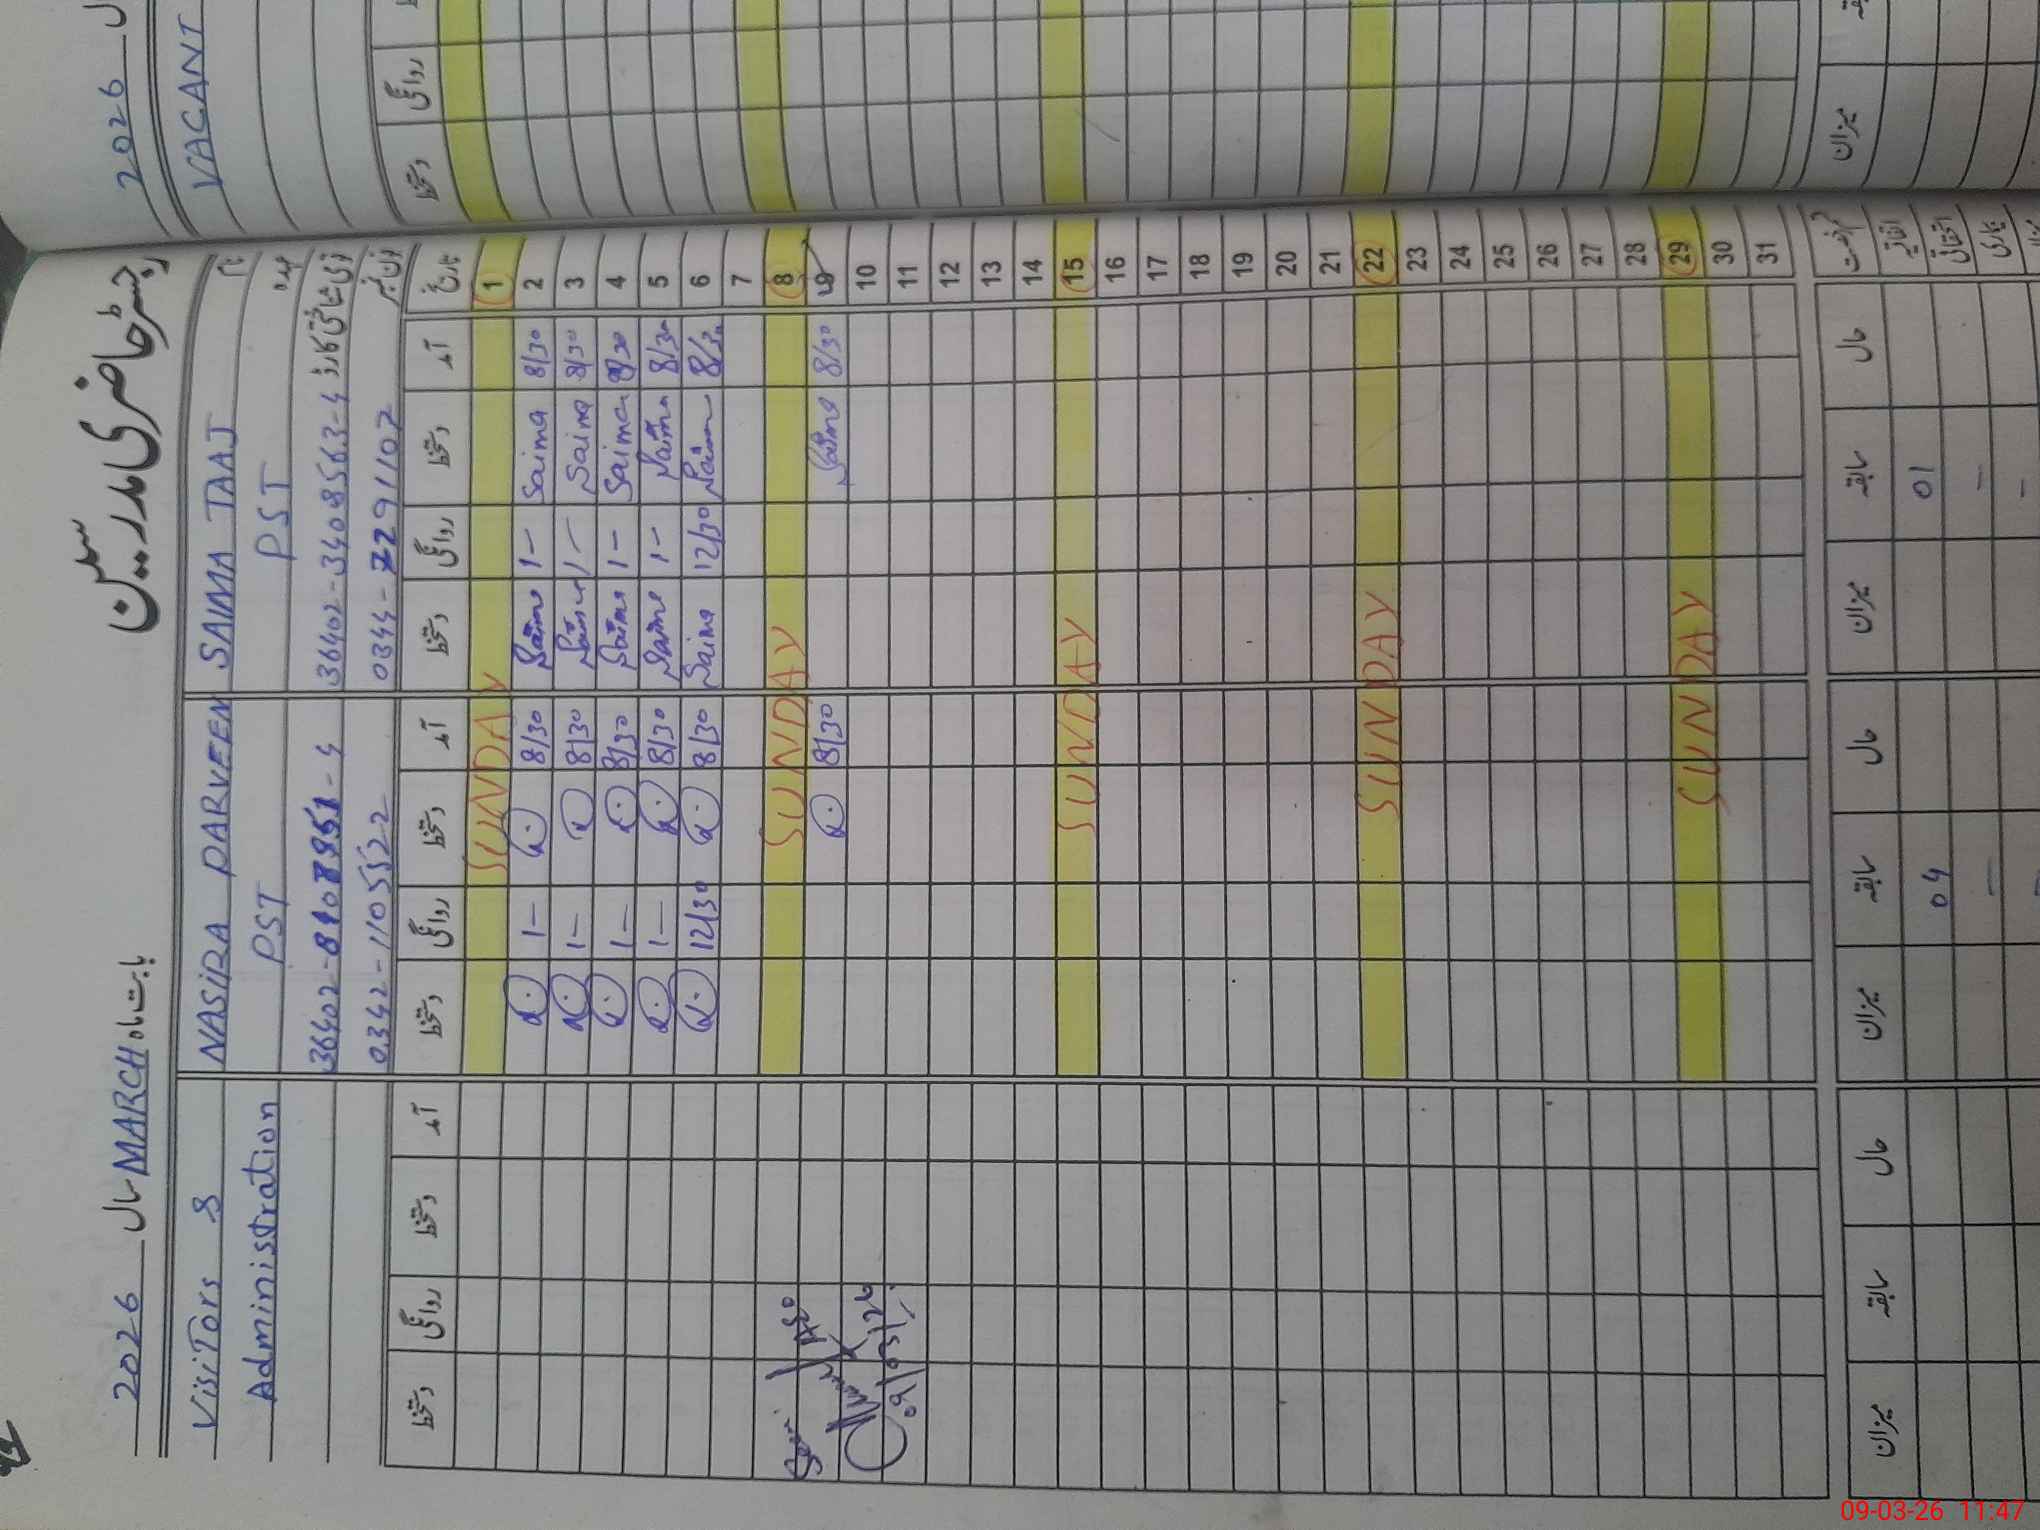 رجسٹر حاضری مدرسین
بابت ماہ MARCH سال 2026
نام SAIMA TAAJ NASIRA PARVEEN VisiTors &
عہدہ PST PST Administration
قومی شناختی کارڈ نمبر
36402-3408563-4
0344-7291107
0342-1105522
تاریخ آمد دستخط روانگی دستخط آمد دستخط روانگی دستخط آمد دستخط روانگی دستخط
1 SUNDAY
2 8/30 Saima 1- Saima 8/30 1-
3 8/30 Saima 1- Saima 8/30 1-
4 8/30 Saima 1- Saima 8/30 1-
5 8/30 Saima 1- Saima 8/30 1-
6 8/30 Saima 12/30 Saima 8/30 12/30
7
8 SUNDAY
9 8/30 Saima 8/30
10
09/03/26
11
12
13
14
15 SUNDAY
16
17
18
19
20
21
22 SUNDAY
23
24
25
26
27
28
29 SUNDAY
30
31
رخصت حال سابقہ میزان حال سابقہ میزان حال سابقہ میزان
اتفاقیہ 01 04
استحقاقی - -
بیماری -
2026 سال
VACANT
روانگی دستخط
میزان
09-03-26 11:47